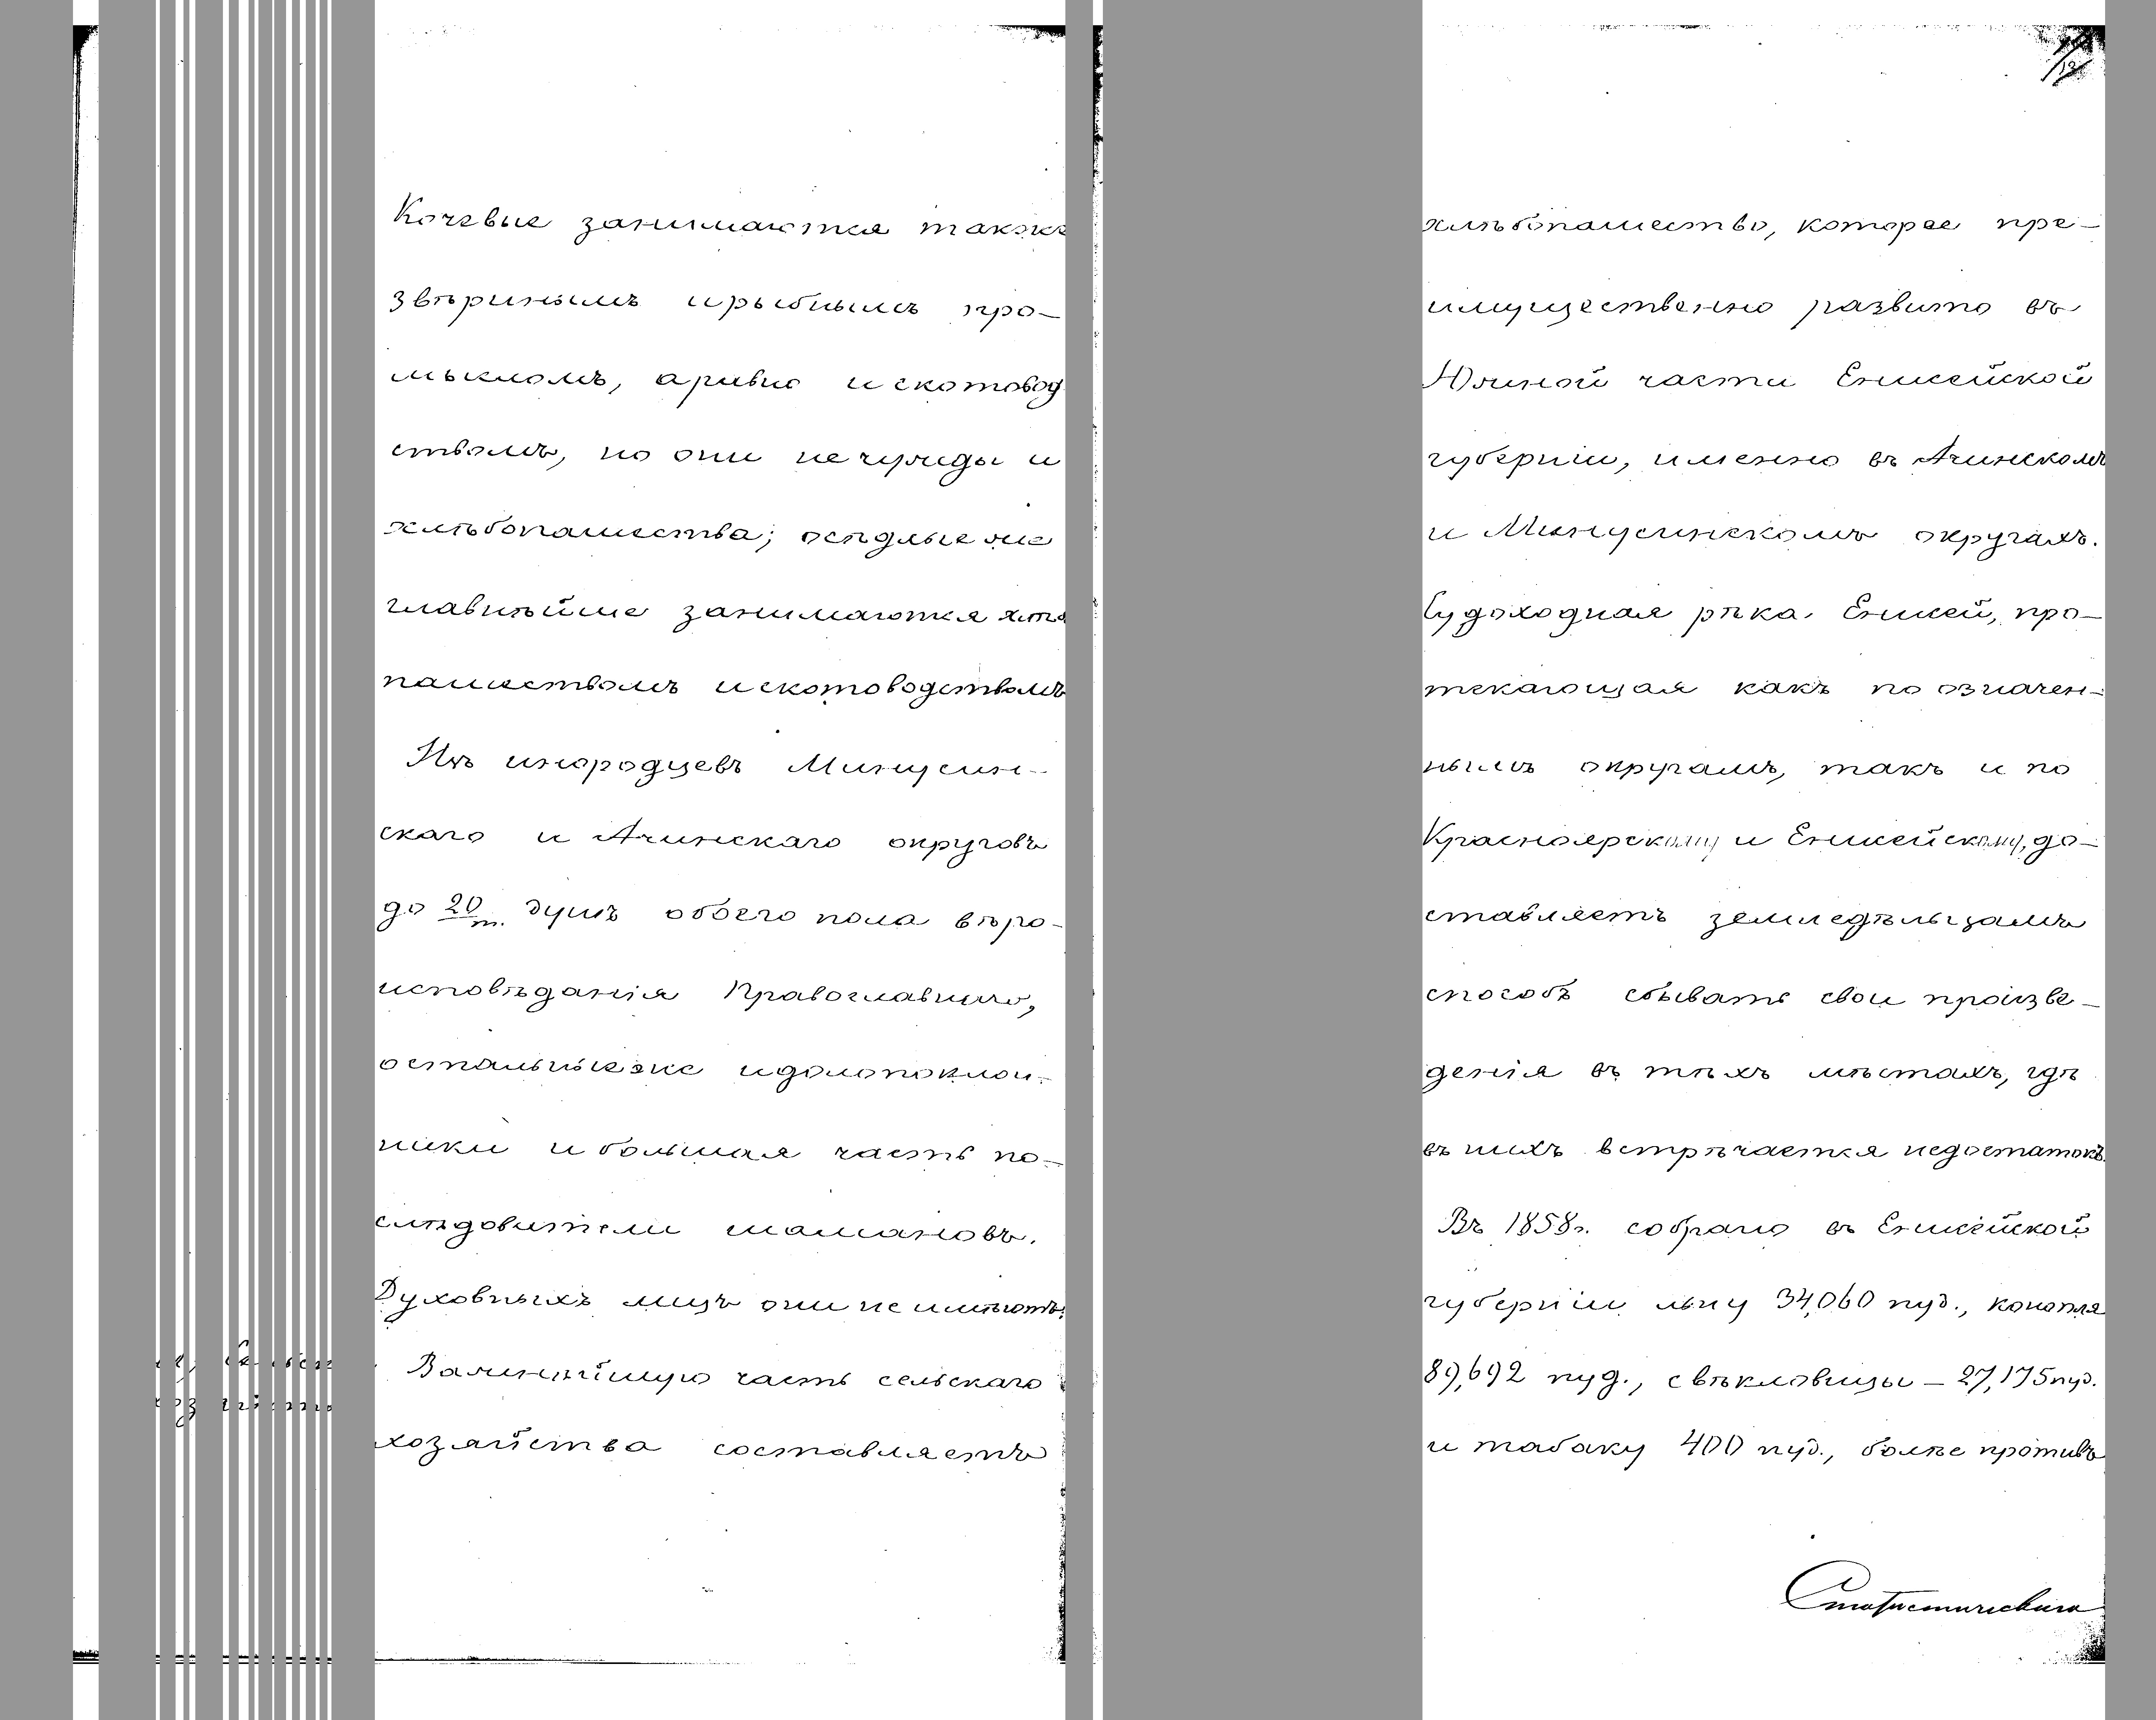 Кочевые занимаются также
звѣринымъ и рыбнымъ про-
мысломъ, а равно и скотовод
ствомъ, но они не чужды и
хлѣбопашества; осѣдлые же
главнѣйше занимаются хлѣбо
пашествомъ и скотоводствомъ
Изъ инородцевъ Минусин-
скаго и Ачинскаго округовъ
до 20 т. душъ обоего пола вѣро-
исповѣданія Православнаго,
остальные же идолопоклон-
ники и большая часть по-
слѣдователи шамановъ.
Духовныхъ лицъ они не имѣютъ.
Важнѣйшую часть сельскаго
хозяйства составляетъ
хлѣбопашество, которое пре-
имущественно развито въ
Южной части Енисейской
губерніи, именно въ Ачинскомъ
и Минусинскомъ округахъ.
Судоходная рѣка Енисей, про-
текающая какъ по означен-
нымъ округамъ, такъ и по
Красноярскому и Енисейскому, до-
ставляетъ земледѣльцамъ
способъ сбывать свои произве-
денія въ тѣхъ мѣстахъ, гдѣ
въ нихъ встрѣчается недостатокъ.
Въ 1858 г. собрано въ Енисейской
губерніи льну 34,060 пуд., конопля
89,692 пуд., свѣкловицы – 27,175 пуд.
и табаку 400 пуд., болѣе противъ
Статистическаго